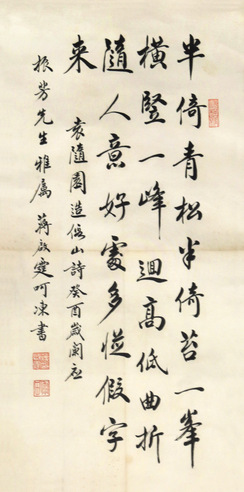 半倚青松半倚苔一峯
橫豎一峰迴高低曲折
隨人意好處多從假字
来
袁隨園造假山詩癸酉歲闌应
振芳先生雅属蔣啟霆呵凍書